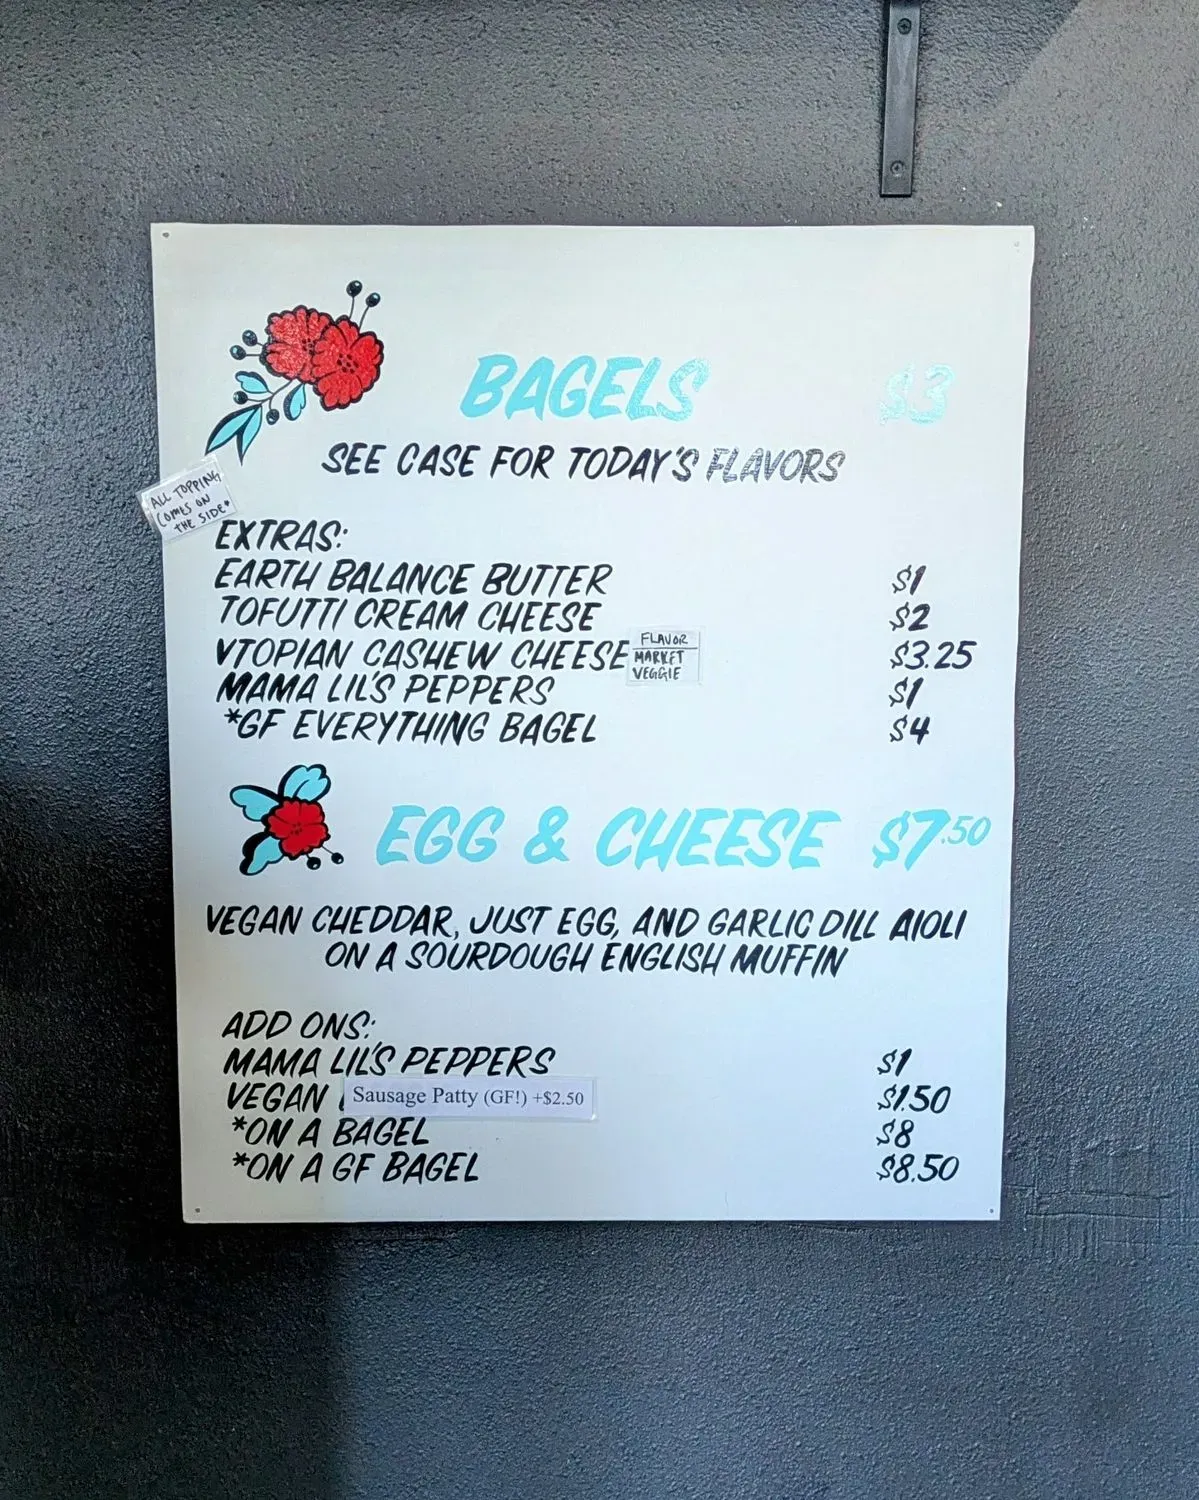 BAGELS $3
SEE CASE FOR TODAY'S FLAVORS
ALL TOPPING
COMES ON
THE SIDE*
EXTRAS:
EARTH BALANCE BUTTER $1
TOFUTTI CREAM CHEESE $2
VTOPIAN CASHEW CHEESE $3.25
FLAVOR
MARKET
VEGGIE
MAMA LIL'S PEPPERS $1
*GF EVERYTHING BAGEL $4
EGG & CHEESE $7.50
VEGAN CHEDDAR, JUST EGG, AND GARLIC DILL AIOLI
ON A SOURDOUGH ENGLISH MUFFIN
ADD ONS:
MAMA LIL'S PEPPERS $1
VEGAN Sausage Patty (GF!) +$2.50 $1.50
*ON A BAGEL $8
*ON A GF BAGEL $8.50